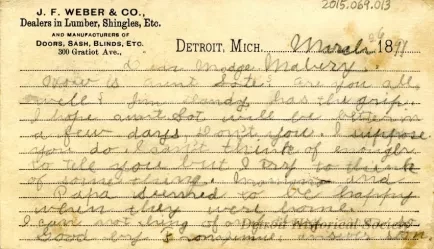 2015.069.013
J. F. WEBER & CO.,
Dealers in Lumber, Shingles, Etc.
AND MANUFACTURERS OF
DOORS, SASH, BLINDS, ETC.
300 Gratiot Ave.,
DETROIT, MICH. March 26 1891
Dear Madge Mabery.
How is aunt Lote are you all
well? Jim has the grip.
I hope aunt Lot will be better in
a few days don't you. I suppose
you do I can't think of enough
to tell you but I try to think
of some thing. Mamma and
Papa seemed to be happy
when they were home.
I can not think of
Good by
Detroit Historical Society